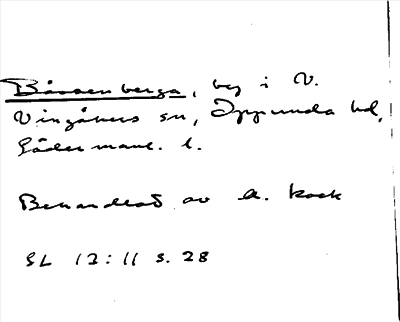 Båssenberga, by i V.
Vingåkers sn, Oppunda hd,
Södermanl. l.
Behandlat av A. Kock
SL 12:11 s. 28